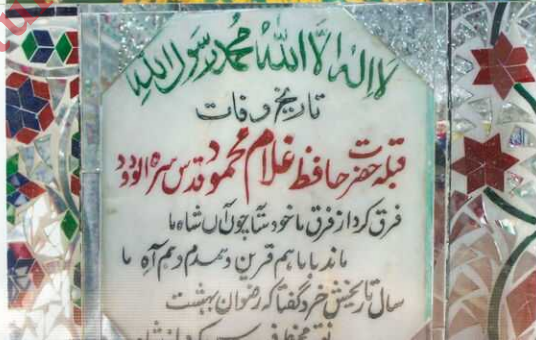 لا اله الا الله محمد رسول الله
تاریخ وفات
قبلہ حضرت حافظ غلام محمود قدس سرہ الودود
فرق کرد از فرق ما خود سایہ چوں آں شاہ ما
ماند با ما ہم قرین و ہمدم و ہم آہِ ما
سال تاریخش خرد گفتا کہ رضوان بہشت